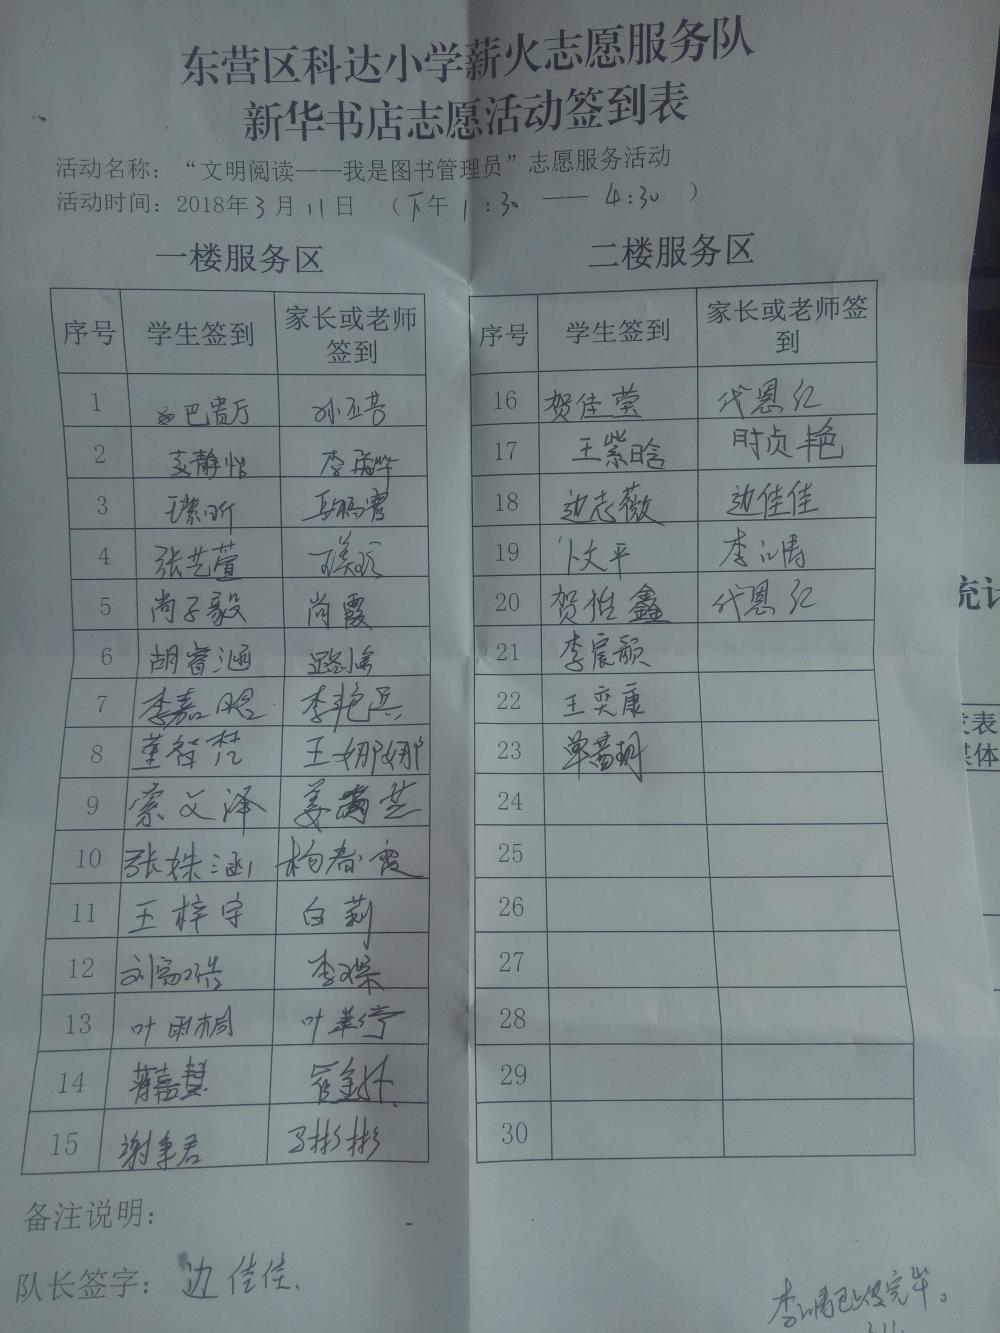 东营区科达小学薪火志愿服务队
新华书店志愿活动签到表
活动名称：“文明阅读——我是图书管理员”志愿服务活动
活动时间：2018年3月11日 （下午1:30——4:30）
一楼服务区
序号 学生签到 家长或老师签到
1 巴贵厅
2 静怡
3
4 张艺萱
5 尚子毅 尚霞
6 胡睿涵
7 李嘉晗 李艳兵
8 董智梵 王娜娜
9 索文泽 姜
10 张姝涵 杨春霞
11 王梓宇 白莉
12 刘
13 叶雨桐 叶
14 蒋嘉慧
15 谢 君 马彬彬
二楼服务区
序号 学生签到 家长或老师签到
16 贺佳莹 代恩红
17 王紫晗 时贞艳
18 边志薇 边佳佳
19 卜文平 李 涛
20 贺佳鑫 代恩红
21 李宸歌
22 王奕康
23 单
24
25
26
27
28
29
30
备注说明：
队长签字：边佳佳.
李 涛已上传完毕。
3.11.
统计
发表
媒体